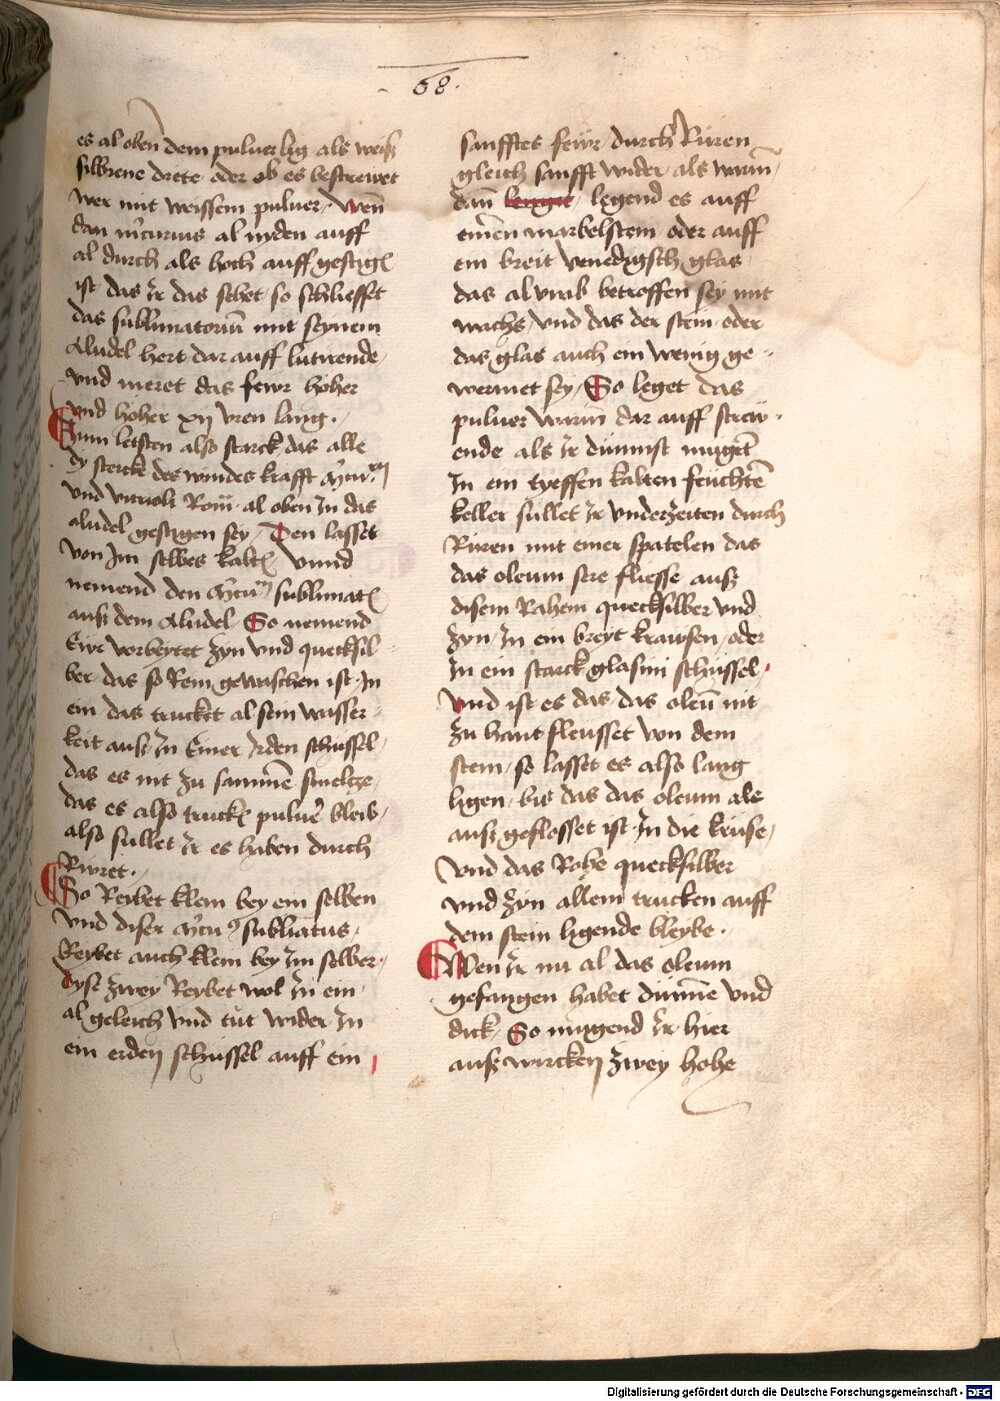 68.
es al oben dem puluer lig als weiß
silbrene drete oder ob es bestrewet
wer mit weissem puluer. wen̄
dan m̓curius al nyden auff
al durch als hoch auff gestigē
ist das ir das sehet so schliesset
das sublimatoriū mit seynem
aludel hert dar auff lutirende
vnd meret das fewr hoher
vnd hoher xij vren lang.
Zum letsten also starck das alle
dy stercke des windes krafft
vnd vitrioli Rom̄ al oben in das
aludel gestigen sey. Den lasset
von im selbes kaltē vnnd
nemend den sublimatē
auß dem aludel So nemend
Ewr vorbeytet zyn vnd quecksil
ber das so Rein gewaschen ist. in
ein das trucket al sein wasser
keit auß in einer irden schussel
das es nit zu samēn smeltze
das es also truckē puluer bleib
also sullet ir es haben durch
Rüret.
So Reybet klein bey ein selben
vnd diser subliatus
Reybet auch klein bey im selber.
dyse zwey Reybet wol in ein
al geleich vnd tut wider in
ein erden schussel auff ein
sanfftes fewr durch Rüren
gleich sanfft wider als warm
dan̄ legend es auff
einen marbelstein oder auff
ein breit venedigsch glas
das al vmb betroffen sey mit
wachs vnd das der stein oder
das glas auch ein wenig ge
wermet sey So leget das
puluer warm dar auff strew
ende als ir dünnist mugēt
in ein tyeffen kalten feuchtē
keller sullet ir vnderzeiten durch
Rüren mit einer spatelen das
das oleum sere fliesse auß
disem Rahem quecksilber vnd
zyn in ein breyt krausen oder
in ein starck glasini schussel
vnd ist es das das oleū nit
zu hant fleusset von dem
stein so lasset es also lang
ligen bis das das oleum als
auß geflosset ist in die kruse
vnd das Rohe quecksilber
vnd zyn allein trucken auff
dem stein ligende bleybe.
Wen ir nu al das oleum
gefangen habet dünne vnd
dick So mugend ir hier
auß wircken zwey hohe
Digitalisierung gefördert durch die Deutsche Forschungsgemeinschaft - DFG